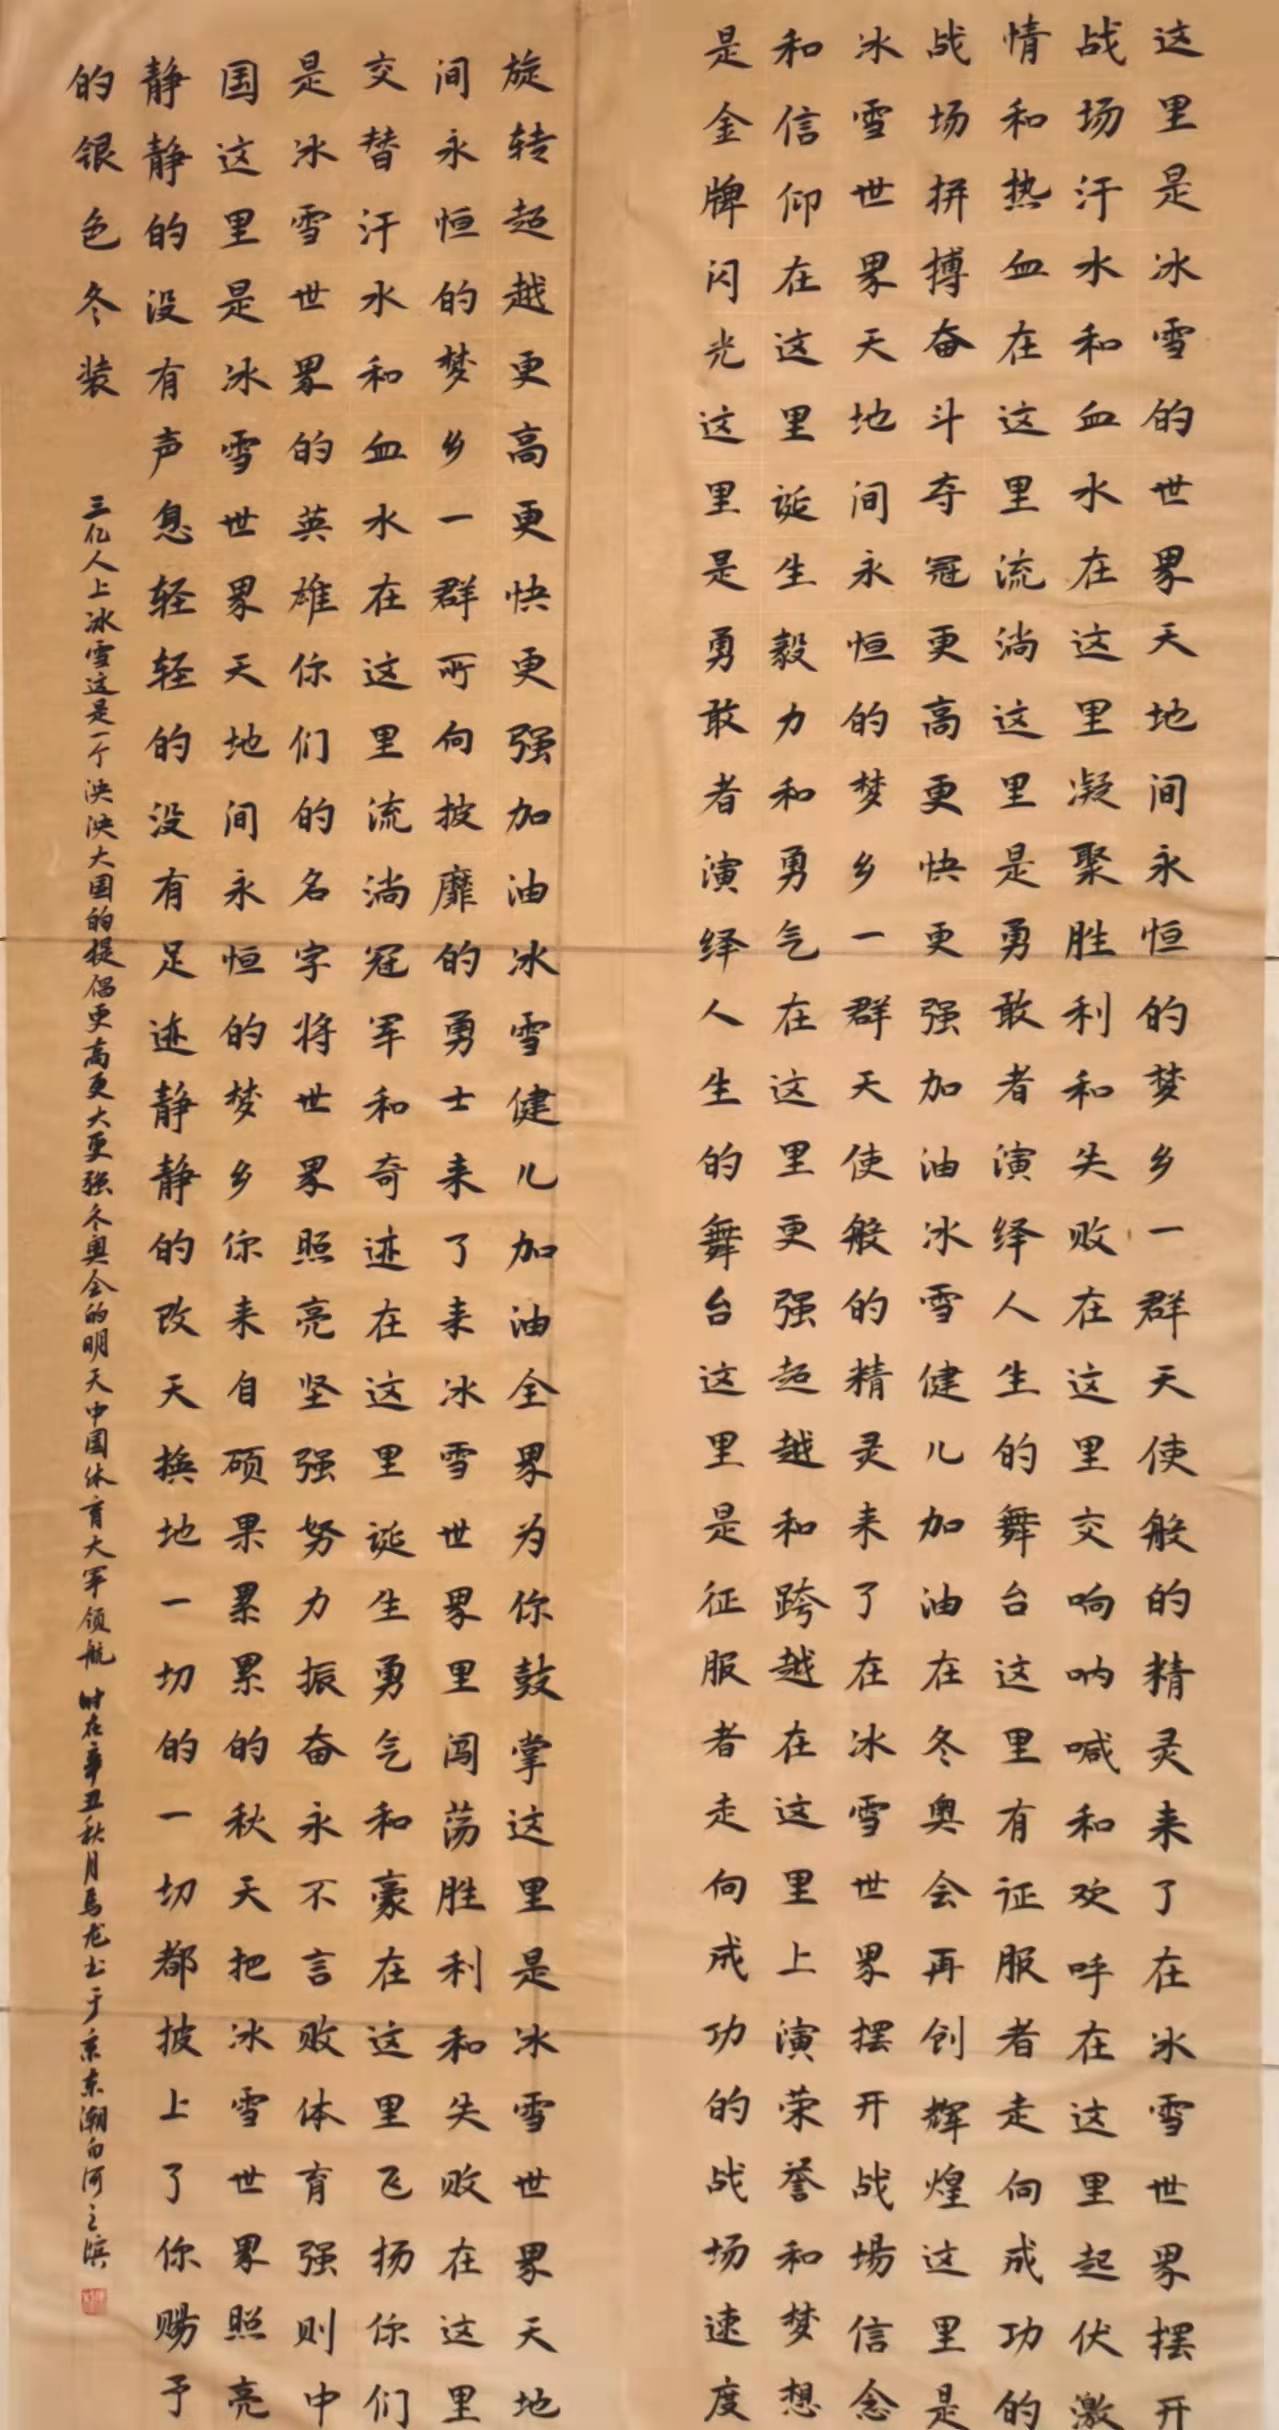 这里是冰雪的世界天地间永恒的梦乡一群天使般的精灵来了在冰雪世界摆开
战场汗水和血水在这里凝聚胜利和失败在这里交响呐喊和欢呼在这里起伏激
情和热血在这里流淌这里是勇敢者演绎人生的舞台这里有证服者走向成功的
战场拼搏奋斗夺冠更高更快更强加油冰雪健儿加油在冬奥会再创辉煌这里是
冰雪世界天地间永恒的梦乡一群天使般的精灵来了在冰雪世界摆开战場信念
和信仰在这里诞生毅力和勇气在这里更强起越和跨越在这里上演荣誉和梦想
是金牌闪光这里是勇敢者演绎人生的舞台这里是征服者走向成功的战场速度
旋转超越更高更快更强加油冰雪健儿加油全界为你鼓掌这里是冰雪世界天地
间永恒的梦乡一群所向披靡的勇士来了来冰雪世界里闯荡胜利和失败在这里
交替汗水和血水在这里流淌冠军和奇迹在这里诞生勇气和豪在这里飞扬你们
是冰雪世界的英雄你们的名字将世界照亮坚强努力振奋永不言败体育强则中
国这里是冰雪世界天地间永恒的梦乡你来自硕果累累的秋天把冰雪世界照亮
静静的没有声息轻轻的没有足迹静静的改天换地一切的一切都披上了你赐予
的银色冬装
三亿人上冰雪这是一个泱泱大国的提倡更高更大更强冬奥会的明天中国体育大军领航 时在辛丑秋月马龙书于京东潮白河之滨